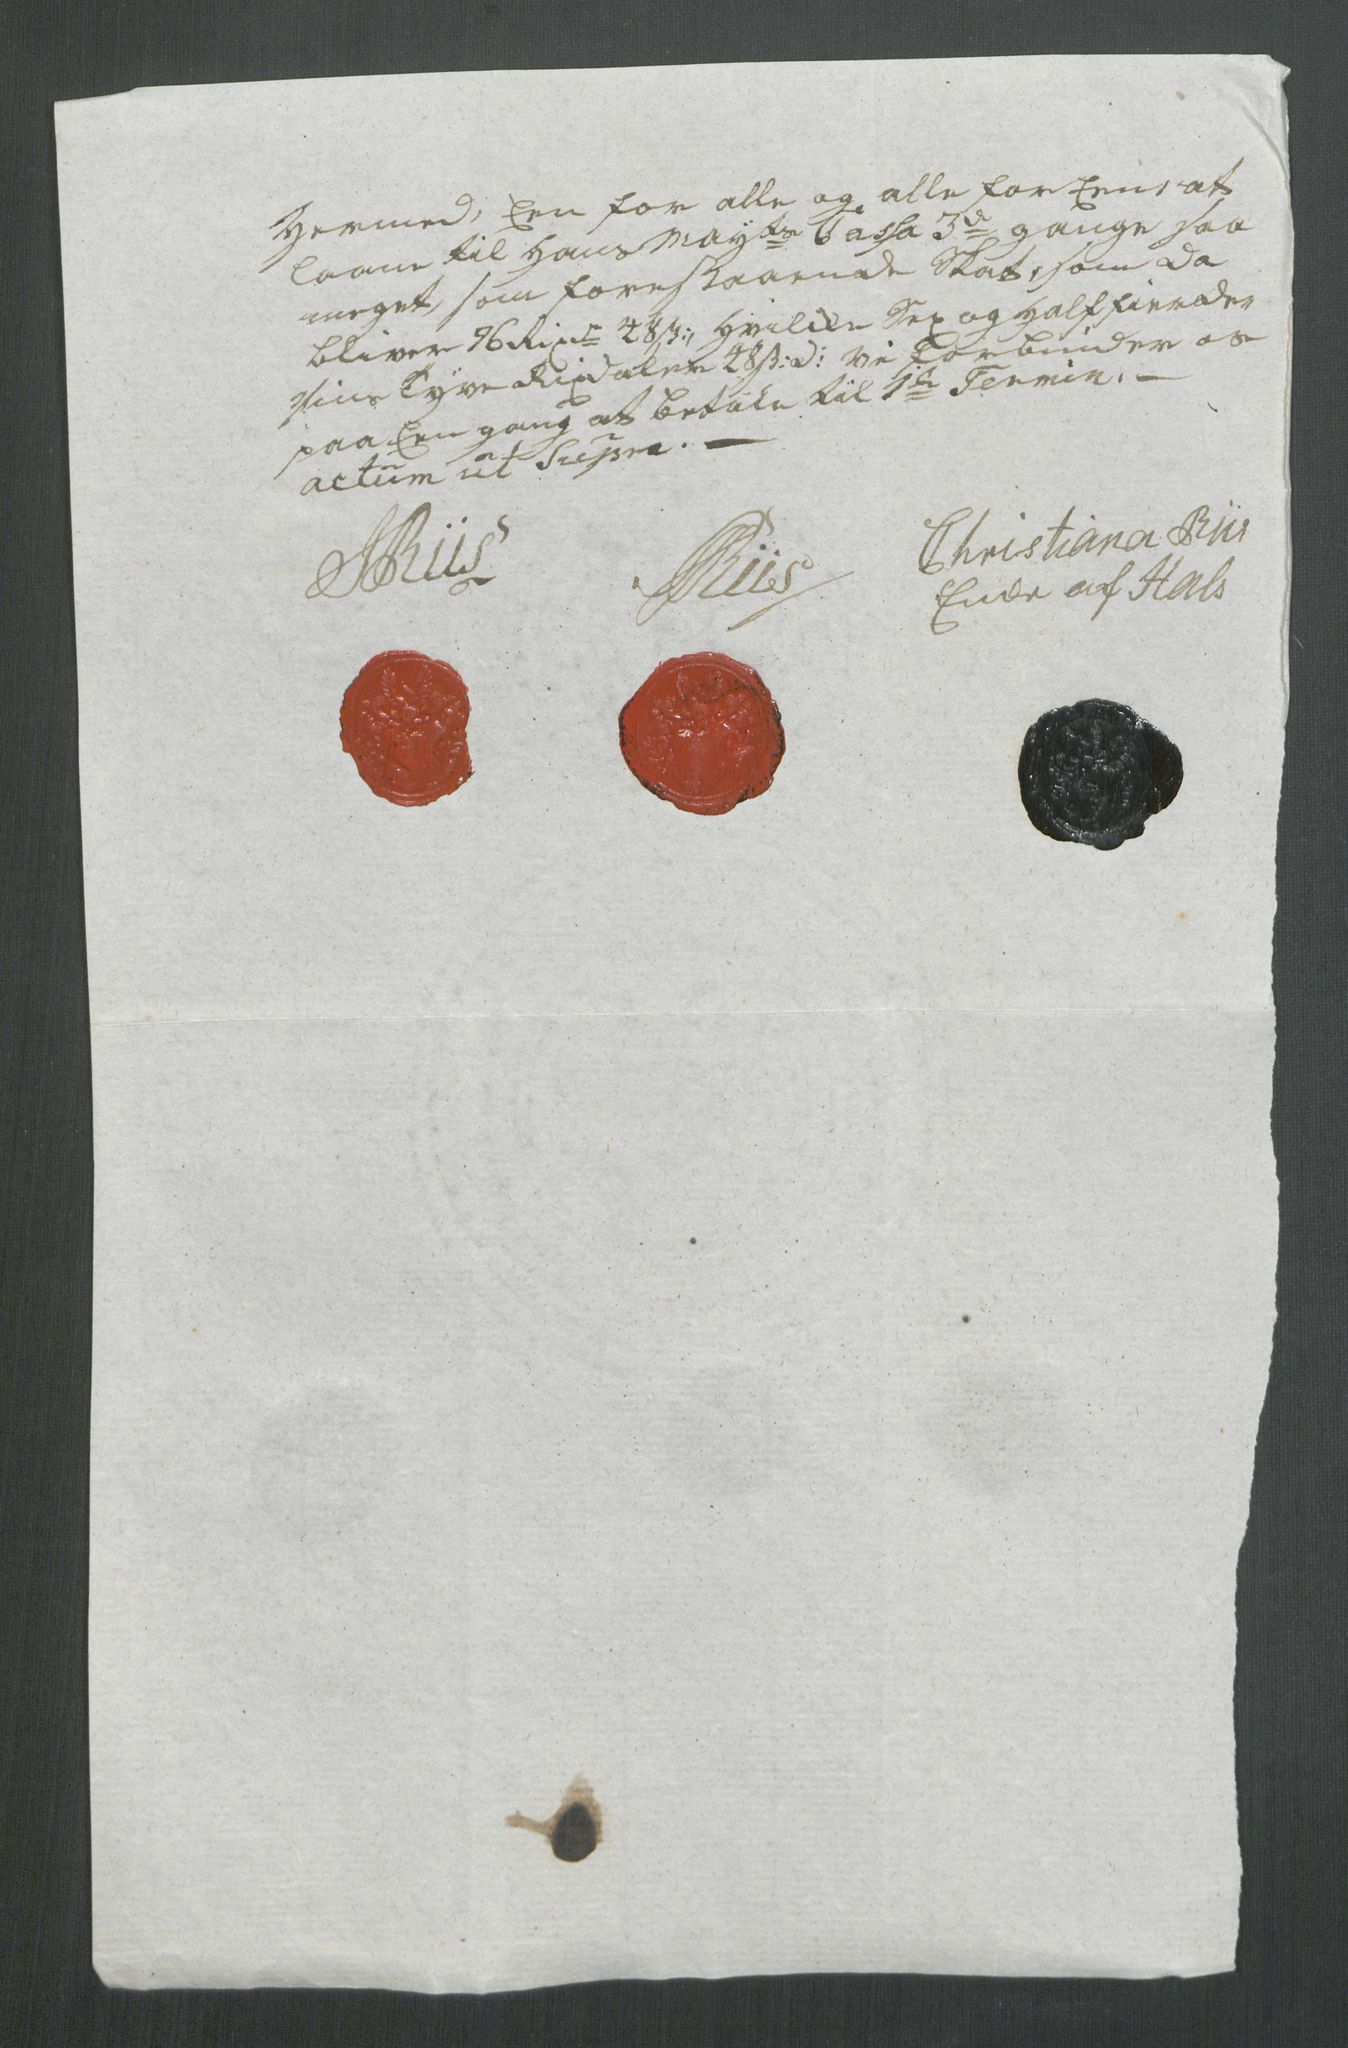 Hermed, Een for alle og alle for Een, at
laane til Hans May:ts Cassa 3de gange saa
meget, som foreskaarende Skat, som da
bliver 76 Rixd 48 β:, Hvilcke Sex og Halffierde
sins Tyve Rixdaler 48 β: d: vi forbinder os
paa Een gang at betale til 1te Termin. —
actum ut Supra. —
SRiis
Riis
Christiana Riis
Enke af Hals